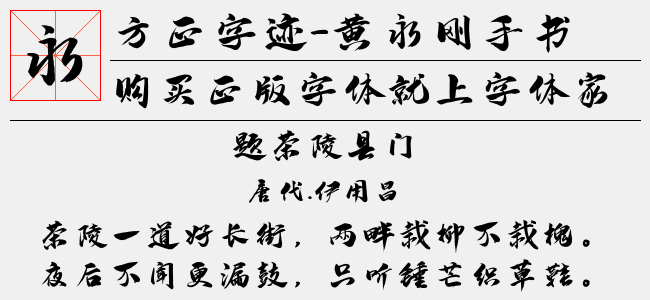 永
方正字迹-黄永刚手书
购买正版字体就上字体家
题茶陵县门
唐代.伊用昌
茶陵一道好长街，两畔栽柳不栽槐。
夜后不闻更漏鼓，只听锤芒织草鞋。